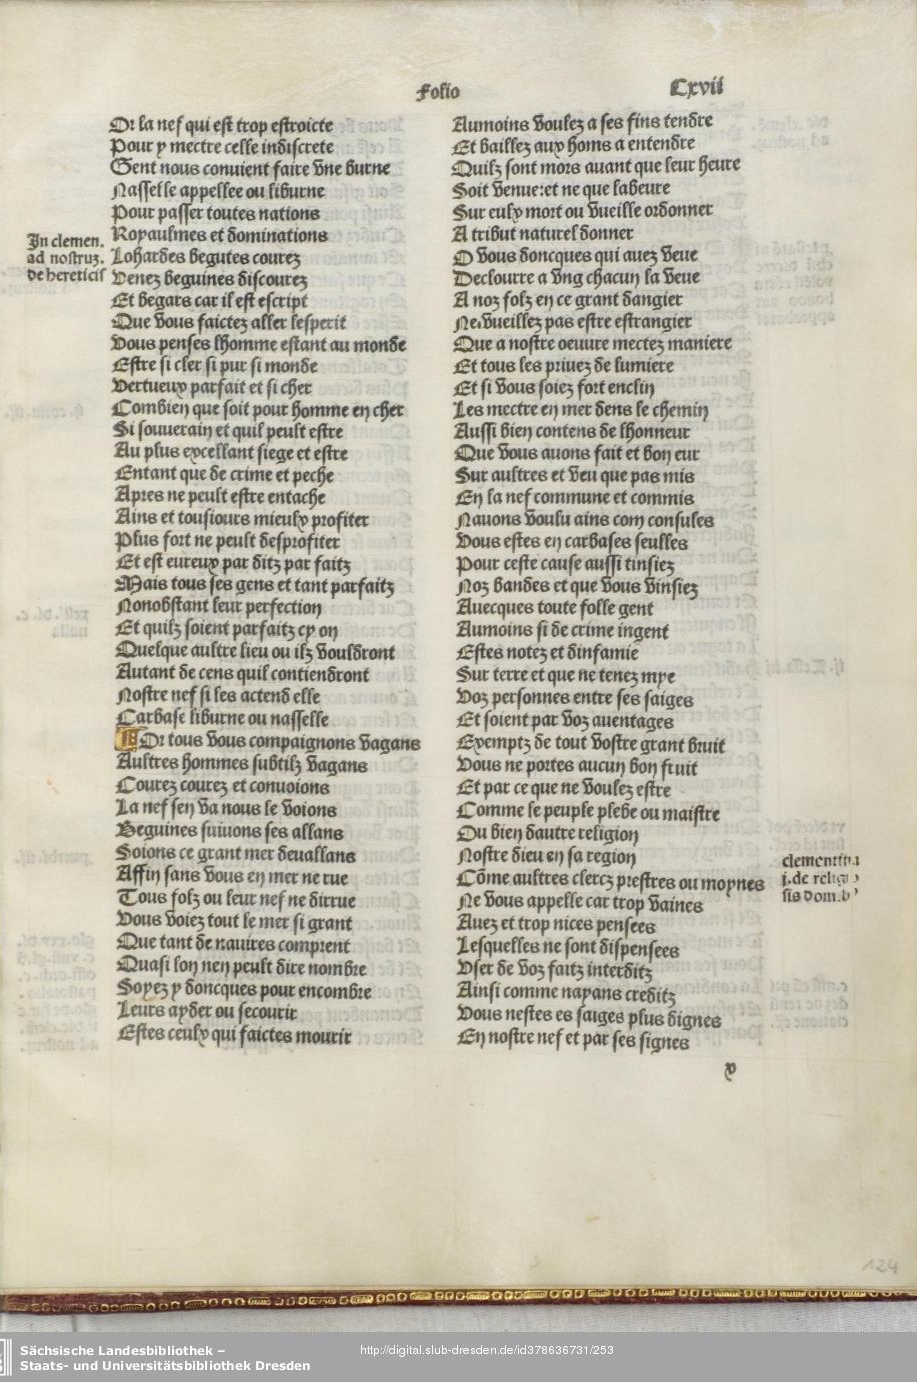 Folio
Cxvii
Or la nef qui est trop estroicte
Pour y mectre celle indiscrete
Gent nous convient faire vne burne
Nasselle appellee ou liburne
Pour passer toutes nations
Royaulmes et dominations
Lohardes begutes courez
Venez beguines discourez
Et begars car il est escript
Que vous faictez aller lesperit
Vous penses lhomme estant au monde
Estre si cler si pur si monde
Vertueux parfait et si cher
Combien que soit pour homme en cher
Si souuerain et quil peult estre
Au plus excellant siege et estre
Entant que de crime et peche
Apres ne peult estre entache
Ains et tousiours mieulx profiter
Plus fort ne peult desprofiter
Et est eureux par ditz par faitz
Mais tous ses gens et tant parfaitz
Nonobstant leur perfection
Et quilz soient parfaitz cy on
Quelque aultre lieu ou ilz vouldront
Autant de cens quil contiendront
Nostre nef si les actend elle
Carbase liburne ou nasselle
Or tous vous compaignons vagans
Aultres hommes subtilz vagans
Courez courez et convoions
La nef sen va nous le voions
Beguines suiuons ses allans
Soions ce grant mer deuallans
Affin sans vous en mer ne rue
Tous folz ou leur nef ne dirrue
Vous voiez tout le mer si grant
Que tant de nauires comprent
Quasi lon nen peult dire nombre
Soyez y doncques pour encombre
Leurs ayder ou secourir
Estes ceulx qui faictes mourir
In clemen.
ad nostruz.
de hereticis
Aumoins voulez a ses fins tendre
Et baillez aux homs a entendre
Quilz sont mors auant que leur heure
Soit venue:et ne que labeure
Sur eulx mort ou vueille ordonner
A tribut naturel donner
O vous doncques qui auez veue
Declourre a vng chacun la veue
A noz folz en ce grant dangier
Ne vueillez pas estre estrangier
Que a nostre oeuure mectez maniere
Et tous les priuez de lumiere
Et si vous soiez fort enclin
Les mectre en mer dens le chemin
Aussi bien contens de lhonneur
Que vous auons fait et bon eur
Sur aultres et veu que pas mis
En la nef commune et commis
Nauons voulu ains com consules
Vous estes en carbases seulles
Pour ceste cause aussi tinsiez
Noz bandes et que vous vinsiez
Auecques toute folle gent
Aumoins si de crime ingent
Estes notez et dinfamie
Sur terre et que ne tenez mye
Voz personnes entre ses saiges
Et soient par voz auentages
Exemptz de tout vostre grant bruit
Vous ne portes aucun bon fruit
Et par ce que ne voulez estre
Comme le peuple plebe ou maistre
Ou bien dautre religion
Nostre dieu en sa region
Cõme aultres clercz prestres ou moynes
Ne vous appelle car trop vaines
Auez et trop nices pensees
Lesquelles ne sont dispensees
Vser de voz faitz interditz
Ainsi comme nayans creditz
Vous nestes es saiges plus dignes
En nostre nef et par ses signes
clementina
j.de religio
sis dom.
v
124
Sächsische Landesbibliothek –
Staats- und Universitätsbibliothek Dresden
http://digital.slub-dresden.de/id378636731/253